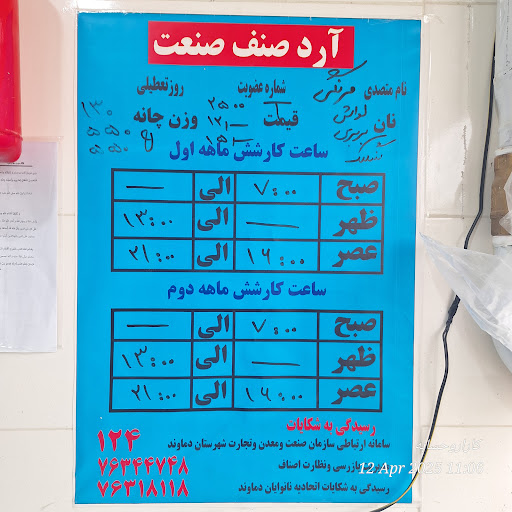 آرد صنف صنعت
نام متصدی شماره عضویت روز تعطیلی
نان لواش قیمت ۲۵۰۰ وزن چانه ۱۳۰
بربری ۵۵۰
سنگک ۵۵۰
ساعت کار شش ماهه اول
صبح ۷:۰۰ الی —
ظهر — الی ۱۳:۰۰
عصر ۱۶:۰۰ الی ۲۱:۰۰
ساعت کار شش ماهه دوم
صبح ۷:۰۰ الی —
ظهر — الی ۱۳:۰۰
عصر ۱۶:۰۰ الی ۲۱:۰۰
رسیدگی به شکایات
سامانه ارتباطی سازمان صنعت و معدن وتجارت شهرستان دماوند ۱۲۴
بازرسی ونظارت اصناف ۷۶۳۴۴۷۴۸
رسیدگی به شکایات اتحادیه نانوایان دماوند ۷۶۳۱۸۱۱۸
12 Apr 2025 11:06